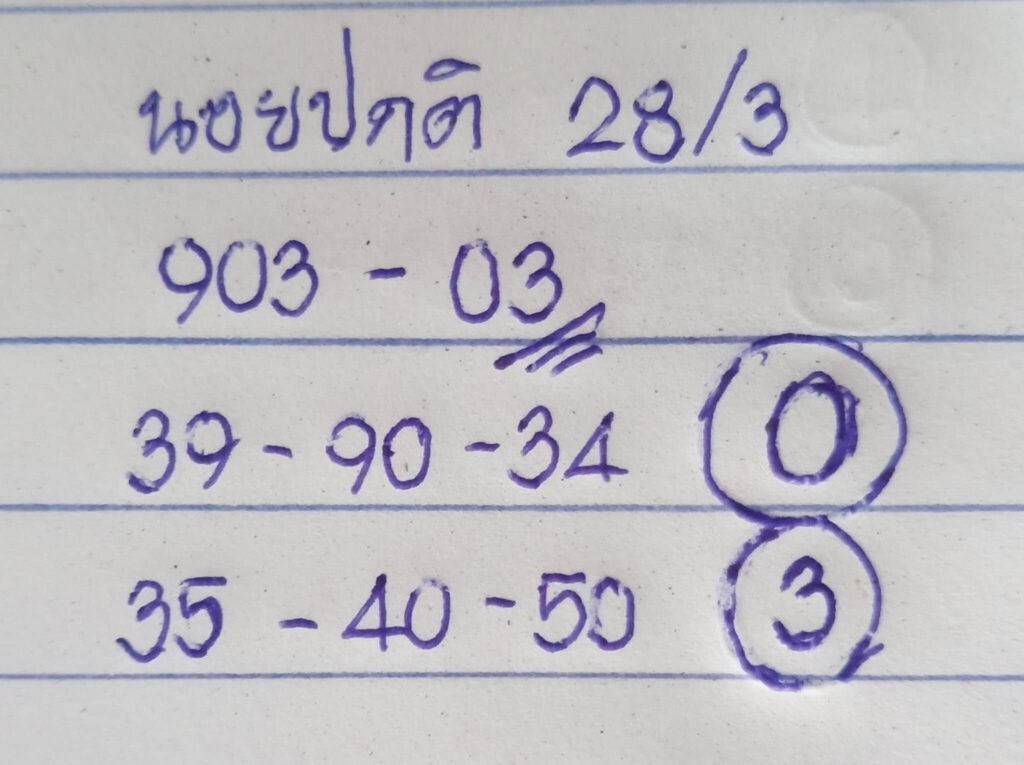 นอยปกติ 28/3
903 - 03
39 - 90 - 34
0
35 - 40 - 50
3